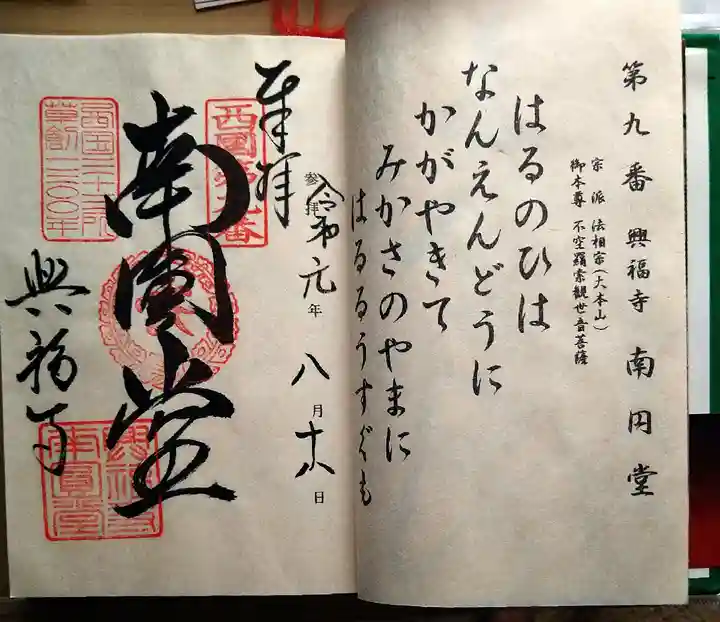 第九番 興福寺 南円堂
宗派 法相宗(大本山)
御本尊 不空羂索観世音菩薩
はるのひは
なんえんどうに
かがやきて
みかさのやまに
はるるうすぐも
奉拝
参拝 令和元年八月十八日
西國第九番
南圓堂
西国三十三所
草創一三〇〇年
興福寺
興福寺
南圓堂